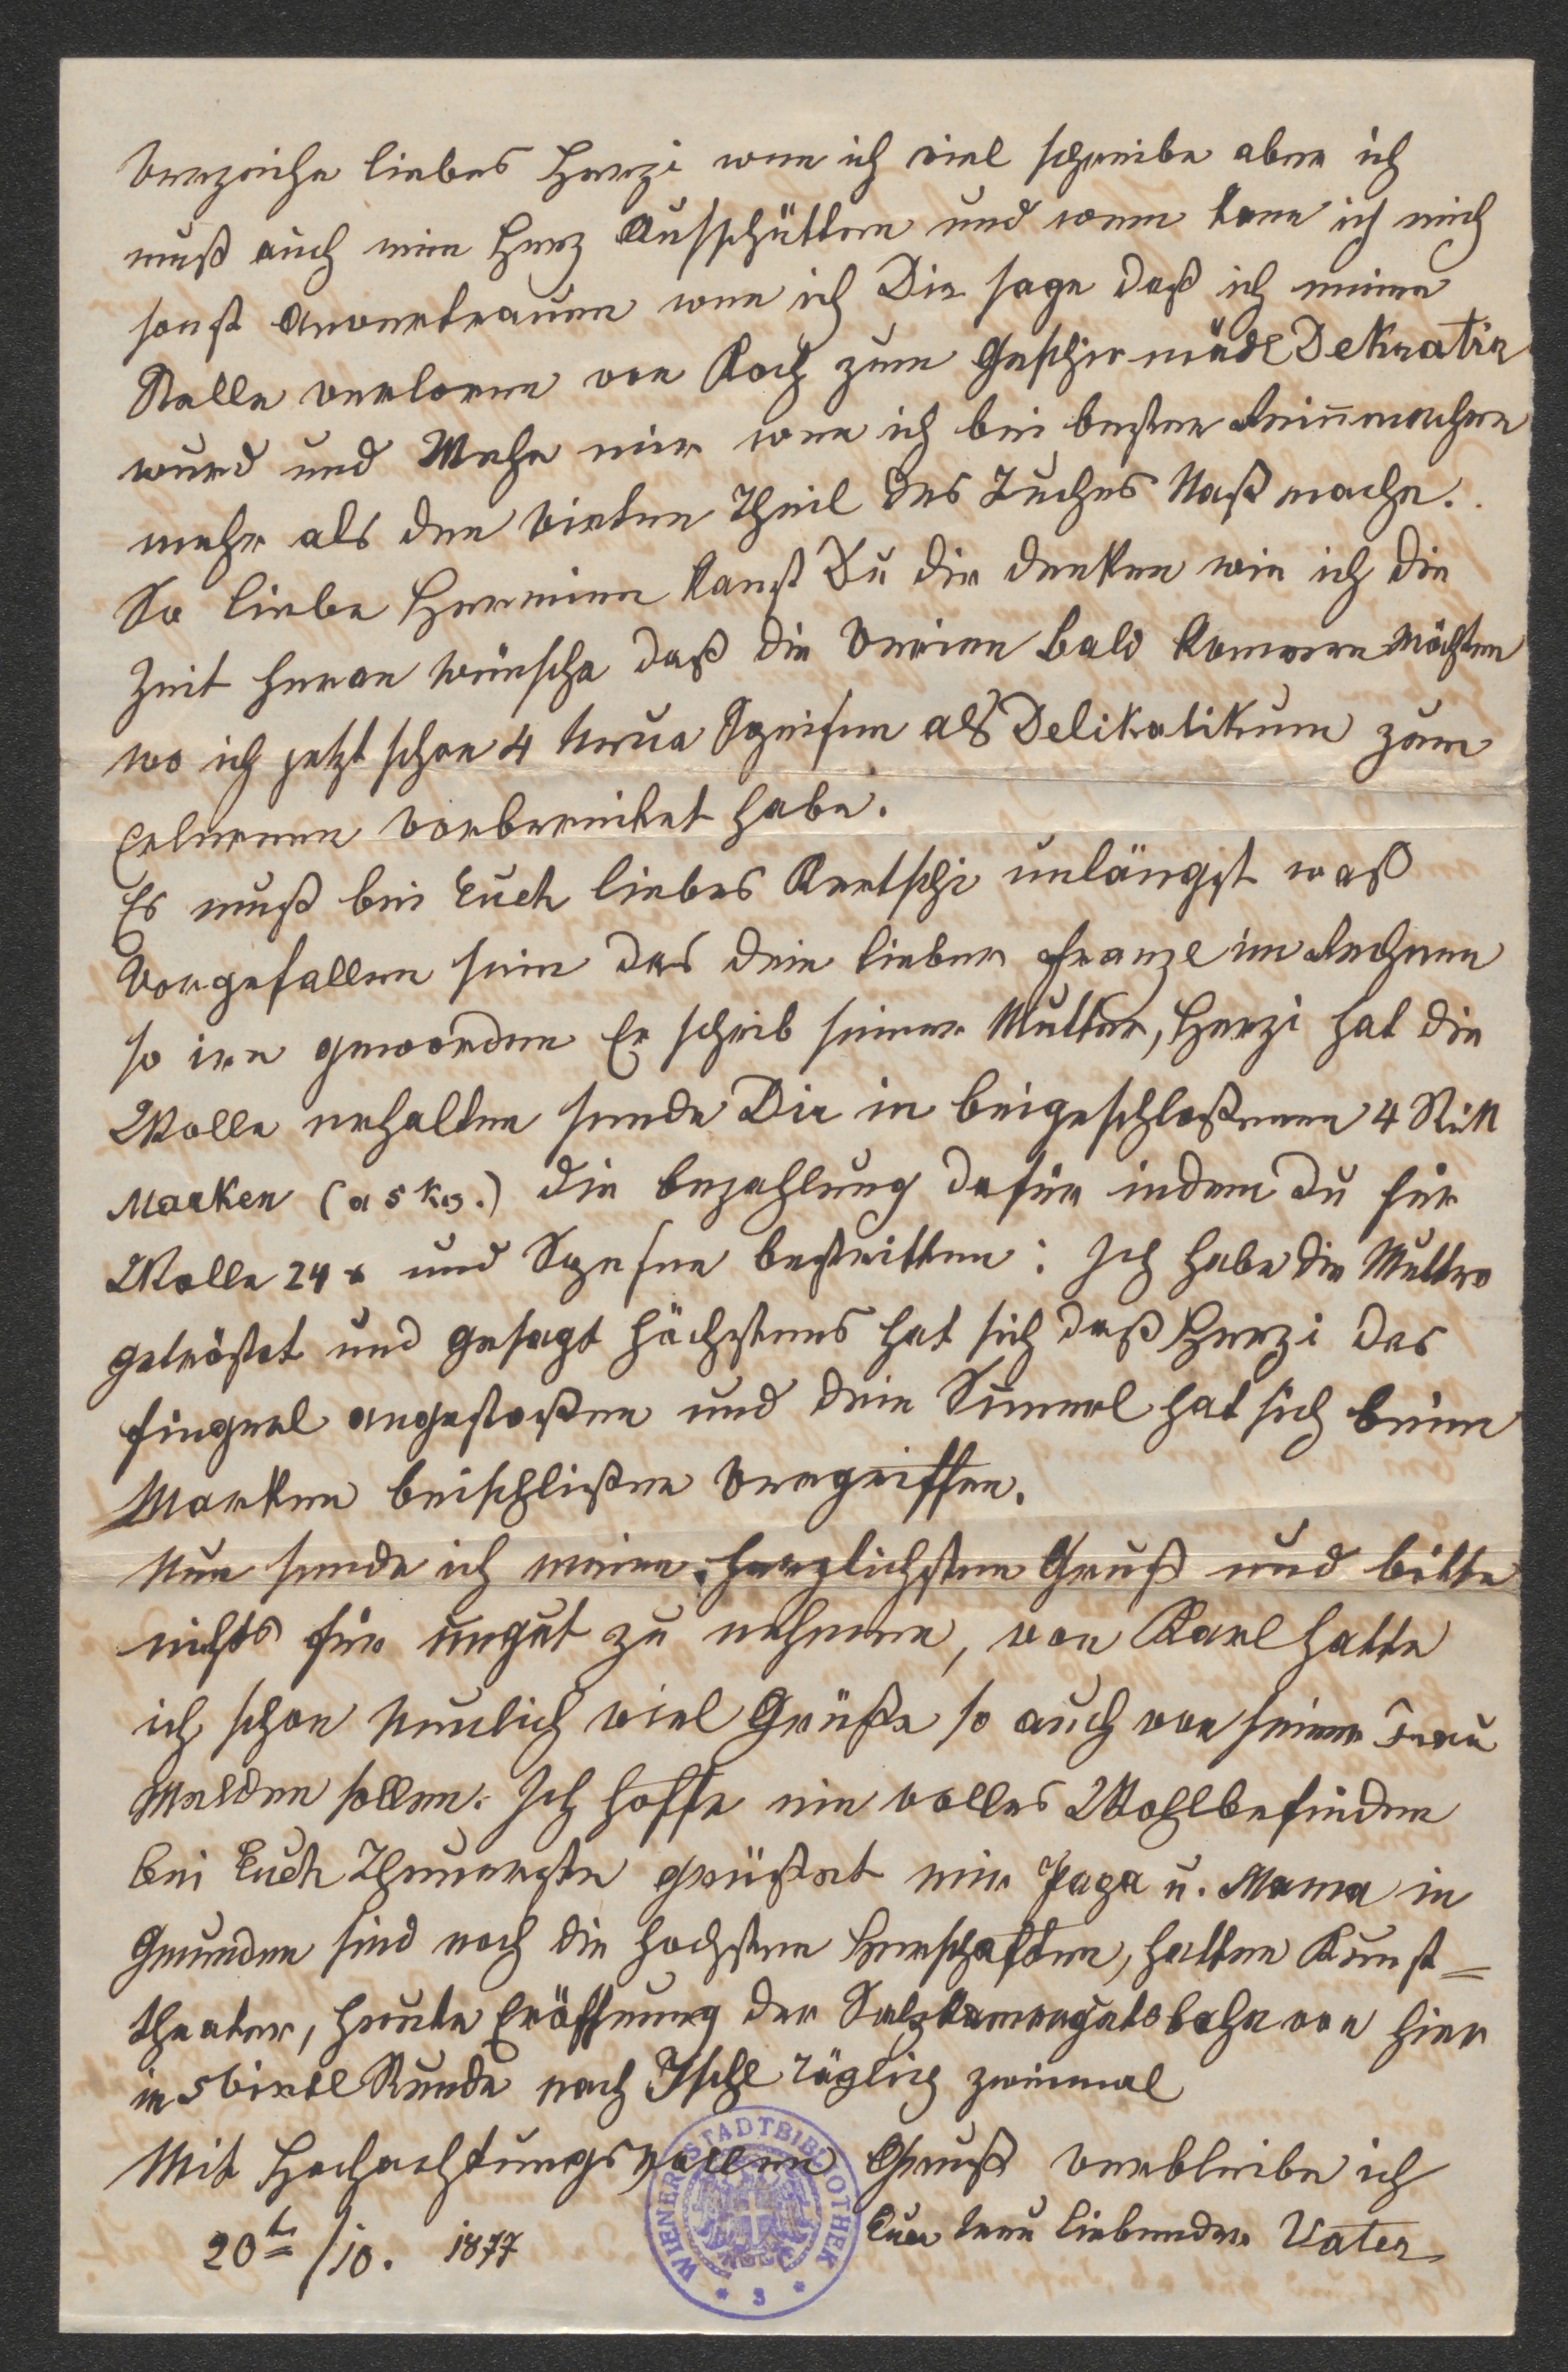 Verzeihe liebes Herzi wen ich viel schreibe aber ich
muß auch mein Herz Ausschütten und wem kann ich mich
sonst Anvertrauen wen ich Dir sage daß ich meine
Stelle verloren von Koch zum Geschirmädl Dekratir
wurd und Wehe mir wen ich bei besten Reinmachen
mehr als den virten Theil des Tuches Naß mache.
So liebe Hermine kanst Du dir denken wie ich die
Zeit heran wünsche daß die Ferien bald kommen möchten
wo ich jetzt schon 4 Neue Speisen als Delikatikum zum
Erlernen Vorbereitet habe.
Es muß bei Euch liebes Kertschi unlängst waß
Vorgefallen sein das dein lieber Franzl im Rechnen
so irr geworden Er schrib seiner Mutter, Herzi hat die
Wolle erhalten sende Dir in beigeschloßenen 4 Stük
Marken (a 5 kr.) die bezahlung dafür indem du für
Wolle 24 x und Spesen bestritten: Ich habe die Mutter
getröstet und gesagt höchstens hat sich daß Herzi das
fingerl angestoßen und dein Sumerl hat sich beim
Marken beischlißen Vergriffen.
Nun sende ich meine herzlichsten Gruß und bitte
nichts für ungut zu nehmen, von Karl hatte
ich schon Neulich viel Grüße so auch von seiner Frau
Melden sollen. Ich hoffe ein volles Wohlbefinden
bei Euch Theuerste grüßet mir Papa u. Mama in
Gmunden sind noch die hochsten Herschaften, hatten Kunst=
theater, heute Eröffnung der Salzkamergutsbahn von hier
in 5 Virtl Stunde nach Ischl Täglich zweimal
Mit Hochachtungsvollen Gruß verbleibe ich
Euer treu liebender Vater
20te /10. 1877
WIENER STADTBIBLIOTHEK
* 3 *